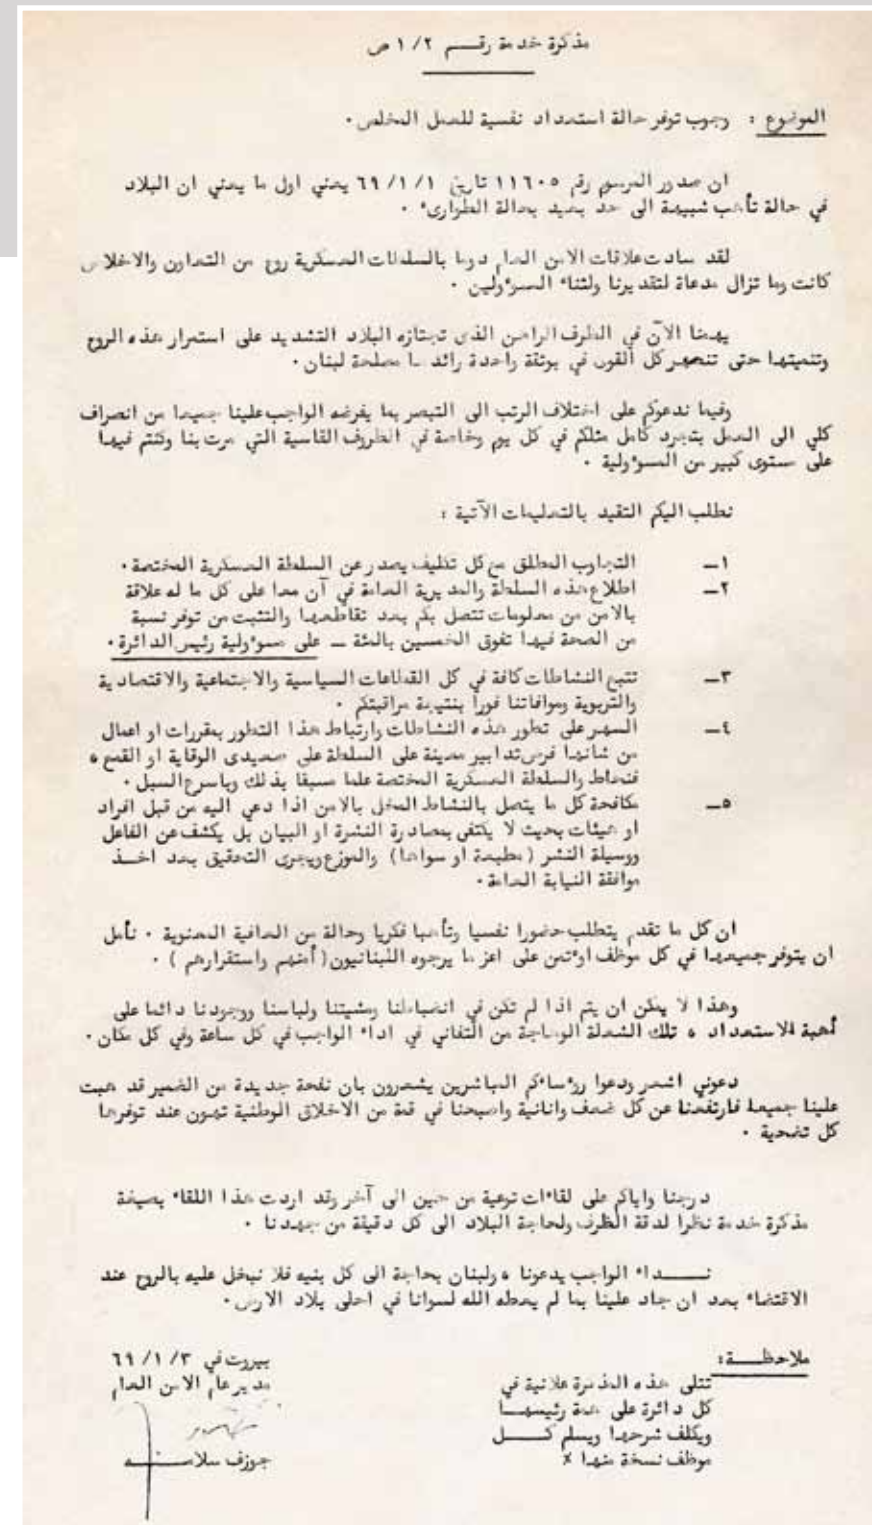 مذكرة خدمة رقــم ١/٢ ص
الموضوع : وجوب توفر حالة استعداد نفسية للعمل المخلص .
ان صدور المرسوم رقم ١١٦٠٥ تاريخ ٦٩/١/١ يعني اول ما يعني ان البلاد
في حالة تأهب شبيهة الى حد بعيد بحالة الطوارىء .
لقد سادت علاقات الامن العام دوما بالسلطات العسكرية روح من التعاون والاخلاص
كانت وما تزال مدعاة لتقديرنا ولثناء المسؤولين .
يهمنا الآن في الظرف الراهن الذى تجتازه البلاد التشديد على استمرار هذه الروح
وتنميتها حتى تنصهر كل القوى في بوتقة واحدة رائدها مصلحة لبنان .
وفيما ندعوكم على اختلاف الرتب الى التبصر بما يفرضه الواجب علينا جميعا من انصراف
كلي الى العمل بتجرد كامل مثلكم في كل يوم وخاصة في الظروف القاسية التي مرت بنا وكنتم فيها
على مستوى كبير من المسؤولية .
نطلب اليكم التقيد بالتعليمات الآتية :
١ــ التجاوب المطلق مع كل تكليف يصدر عن السلطة العسكرية المختصة .
٢ــ اطلاع هذه السلطة والمديرية العامة في آن معا على كل ما له علاقة
بالامن من معلومات تتصل بكم بعد تقاطعها والتثبت من توفر نسبة
من الصحة فيها تفوق الخمسين بالمئة ــ على مسؤولية رئيس الدائرة .
٣ــ تتبع النشاطات كافة في كل القطاعات السياسية والاجتماعية والاقتصادية
والتربوية وموافاتنا فورا بنتيجة مراقبتكم .
٤ــ السهر على تطور هذه النشاطات وارتباط هذا التطور بمقررات او اعمال
من شانها فرض تدابير معينة على السلطة على صعيدى الوقاية او القمع ،
فنحاط والسلطة العسكرية المختصة علما مسبقا بذلك وباسرع السبل .
٥ــ مكافحة كل ما يتصل بالنشاط المخل بالامن اذا دعي اليه من قبل افراد
او هيئات بحيث لا يكتفى بمصادرة النشرة او البيان بل يكشف عن الفاعل
ووسيلة النشر ( مطبعة او سواها ) والموزع ويجرى التحقيق بعد اخــذ
موافقة النيابة العامة .
ان كل ما تقدم يتطلب حضورا نفسيا وتأهبا فكريا وحالة من العافية المعنوية . نأمل
ان يتوفر جميعها في كل موظف اوءتمن على اعز ما يرجوه اللبنانيون ( أمنهم واستقرارهم ) .
وهذا لا يمكن ان يتم اذا لم تكن في انضباطنا ومشيتنا ولباسنا ووجودنا دائما على
أهبة الاستعداد ، تلك الشعلة الوهاجة من التفاني في اداء الواجب في كل ساعة وفي كل مكان .
دعوني اشعر ودعوا رؤساءكم المباشرين يشعرون بان نفحة جديدة من الضمير قد هبت
علينا جميعا فارتفعنا عن كل ضعف وانانية واصبحنا في قمة من الاخلاق الوطنية تهون عند توفرها
كل تضحية .
درجنا واياكم على لقاءات نوعية من حين الى آخر وقد اردت هذا اللقاء بصيغة
مذكرة خدمة نظرا لدقة الظرف ولحاجة البلاد الى كل دقيقة من جهدنا .
نـــــداء الواجب يدعونا ، ولبنان بحاجة الى كل بنيه فلا نبخل عليه بالروح عند
الاقتضاء بعد ان جاد علينا بما لم يعطه الله لسوانا في احلى بلاد الارض .
ملاحظـــة :
تتلى هذه المذكرة علانية في
كل دائرة على همة رئيسهــا
ويكلف شرحها ويسلم كــــل
موظف نسخة منها x
بيروت في ٦٩/١/٣
مدير عام الامن العام
جوزف سلامــــه